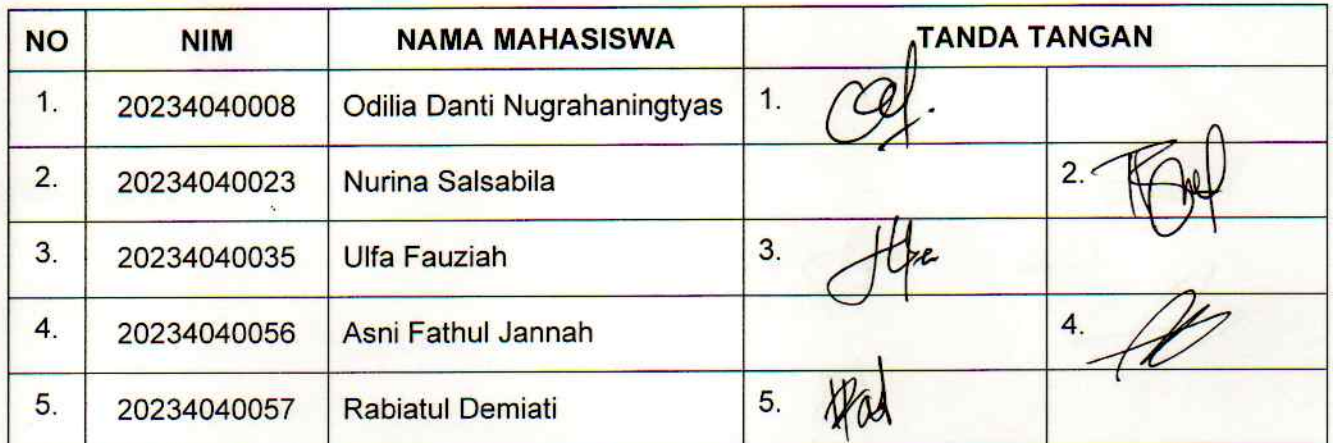 NO NIM NAMA MAHASISWA TANDA TANGAN
1. 20234040008 Odilia Danti Nugrahaningtyas 1.
2. 20234040023 Nurina Salsabila 2.
3. 20234040035 Ulfa Fauziah 3.
4. 20234040056 Asni Fathul Jannah 4.
5. 20234040057 Rabiatul Demiati 5.